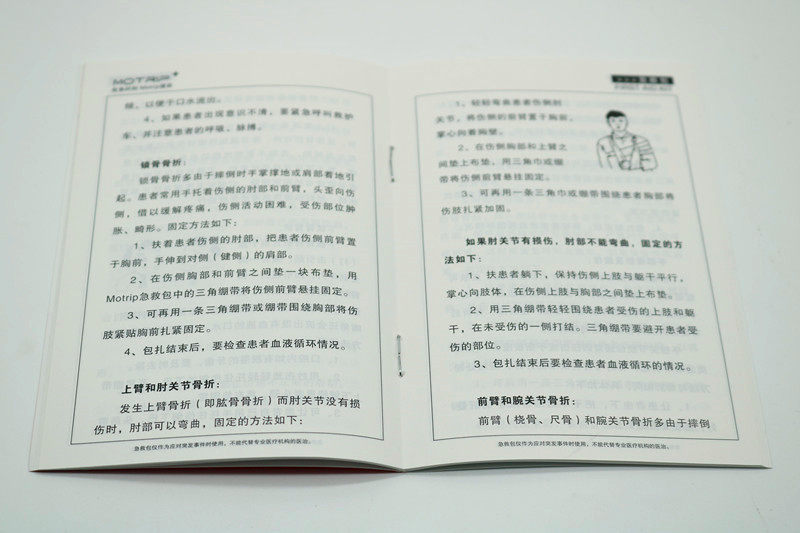 MOTRIP
候，以便于口水流出。
4、如果患者出现意识不清，要紧急呼叫救护
车，并注意患者的呼吸、脉搏。
锁骨骨折：
锁骨骨折多由于摔倒时手掌撑地或肩部着地引
起。患者常用手托着伤侧的肘部和前臂，头歪向伤
侧，借以缓解疼痛，伤侧活动困难，受伤部位肿
胀、畸形。固定方法如下：
1、扶着患者伤侧的肘部，把患者伤侧前臂置
于胸前，手伸到对侧（健侧）的肩部。
2、在伤侧胸部和前臂之间垫一块布垫，用
Motrip急救包中的三角绷带将伤侧前臂悬挂固定。
3、可再用一条三角绷带或绷带围绕胸部将伤
肢紧贴胸前扎紧固定。
4、包扎结束后，要检查患者血液循环情况。
上臂和肘关节骨折：
发生上臂骨折（即肱骨骨折）而肘关节没有损
伤时，肘部可以弯曲，固定的方法如下：
急救包仅作为应对突发事件时使用，不能代替专业医疗机构的医治。
FIRST AID KIT
1、轻轻弯曲患者伤侧肘
关节，将伤侧的前臂置于胸前，
掌心向着胸壁。
2、在伤侧胸部和上臂之
间垫上布垫，用三角巾或绷
带将伤侧前臂悬挂固定。
3、可再用一条三角巾或绷带围绕患者胸部将
伤肢扎紧加固。
如果肘关节有损伤，肘部不能弯曲，固定的方
法如下：
1、扶患者躺下，保持伤侧上肢与躯干平行，
掌心向肢体，在伤侧上肢与胸部之间垫上布垫。
2、用三角绷带轻轻围绕患者受伤的上肢和躯
干，在未受伤的一侧打结。三角绷带要避开患者受
伤的部位。
3、包扎结束后要检查患者血液循环的情况。
前臂和腕关节骨折：
前臂（桡骨、尺骨）和腕关节骨折多由于摔倒
急救包仅作为应对突发事件时使用，不能代替专业医疗机构的医治。